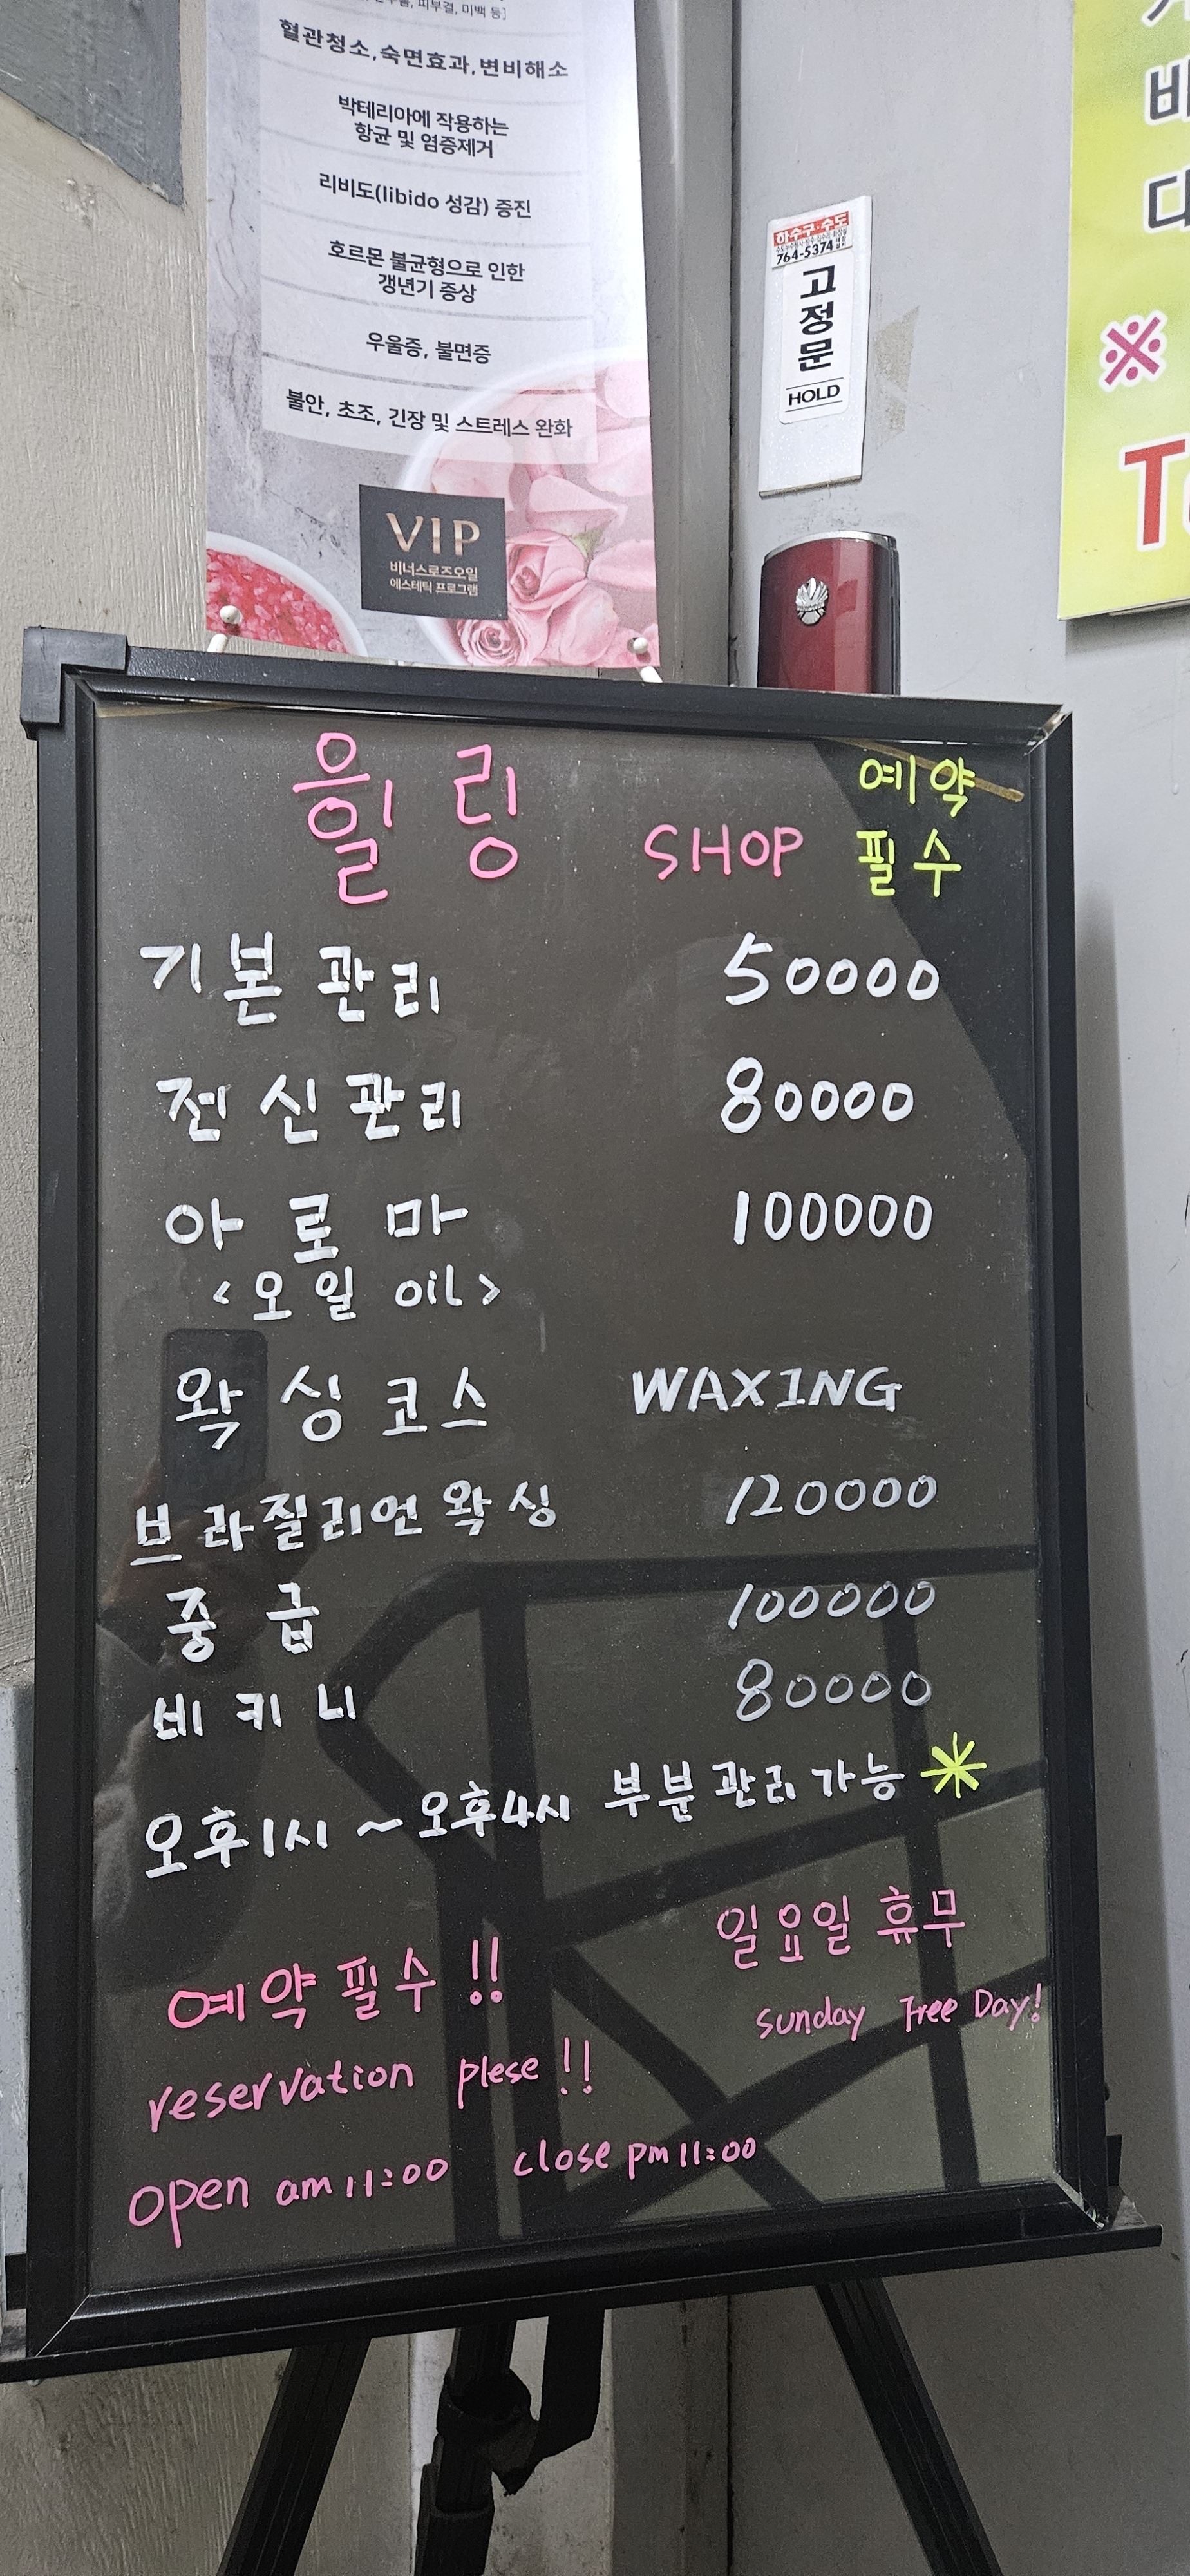 피부결, 미백 등]
혈관청소,숙면효과,변비해소
박테리아에 작용하는
항균 및 염증제거
리비도(libido 성감) 증진
호르몬 불균형으로 인한
갱년기 증상
우울증, 불면증
불안, 초조, 긴장 및 스트레스 완화
VIP
비너스로즈오일
에스테틱 프로그램
하수구·수도
764-5374
고정문
HOLD
※
힐링 SHOP 예약
필수
기본관리 50000
전신관리 80000
아로마 100000
<오일 oil>
왁싱코스 WAXING
브라질리언왁싱 120000
중급 100000
비키니 80000
오후1시 ~ 오후4시 부분관리가능 *
일요일 휴무
예약필수 !!
sunday Free Day!
reservation plese !!
open am 11:00 close pm 11:00